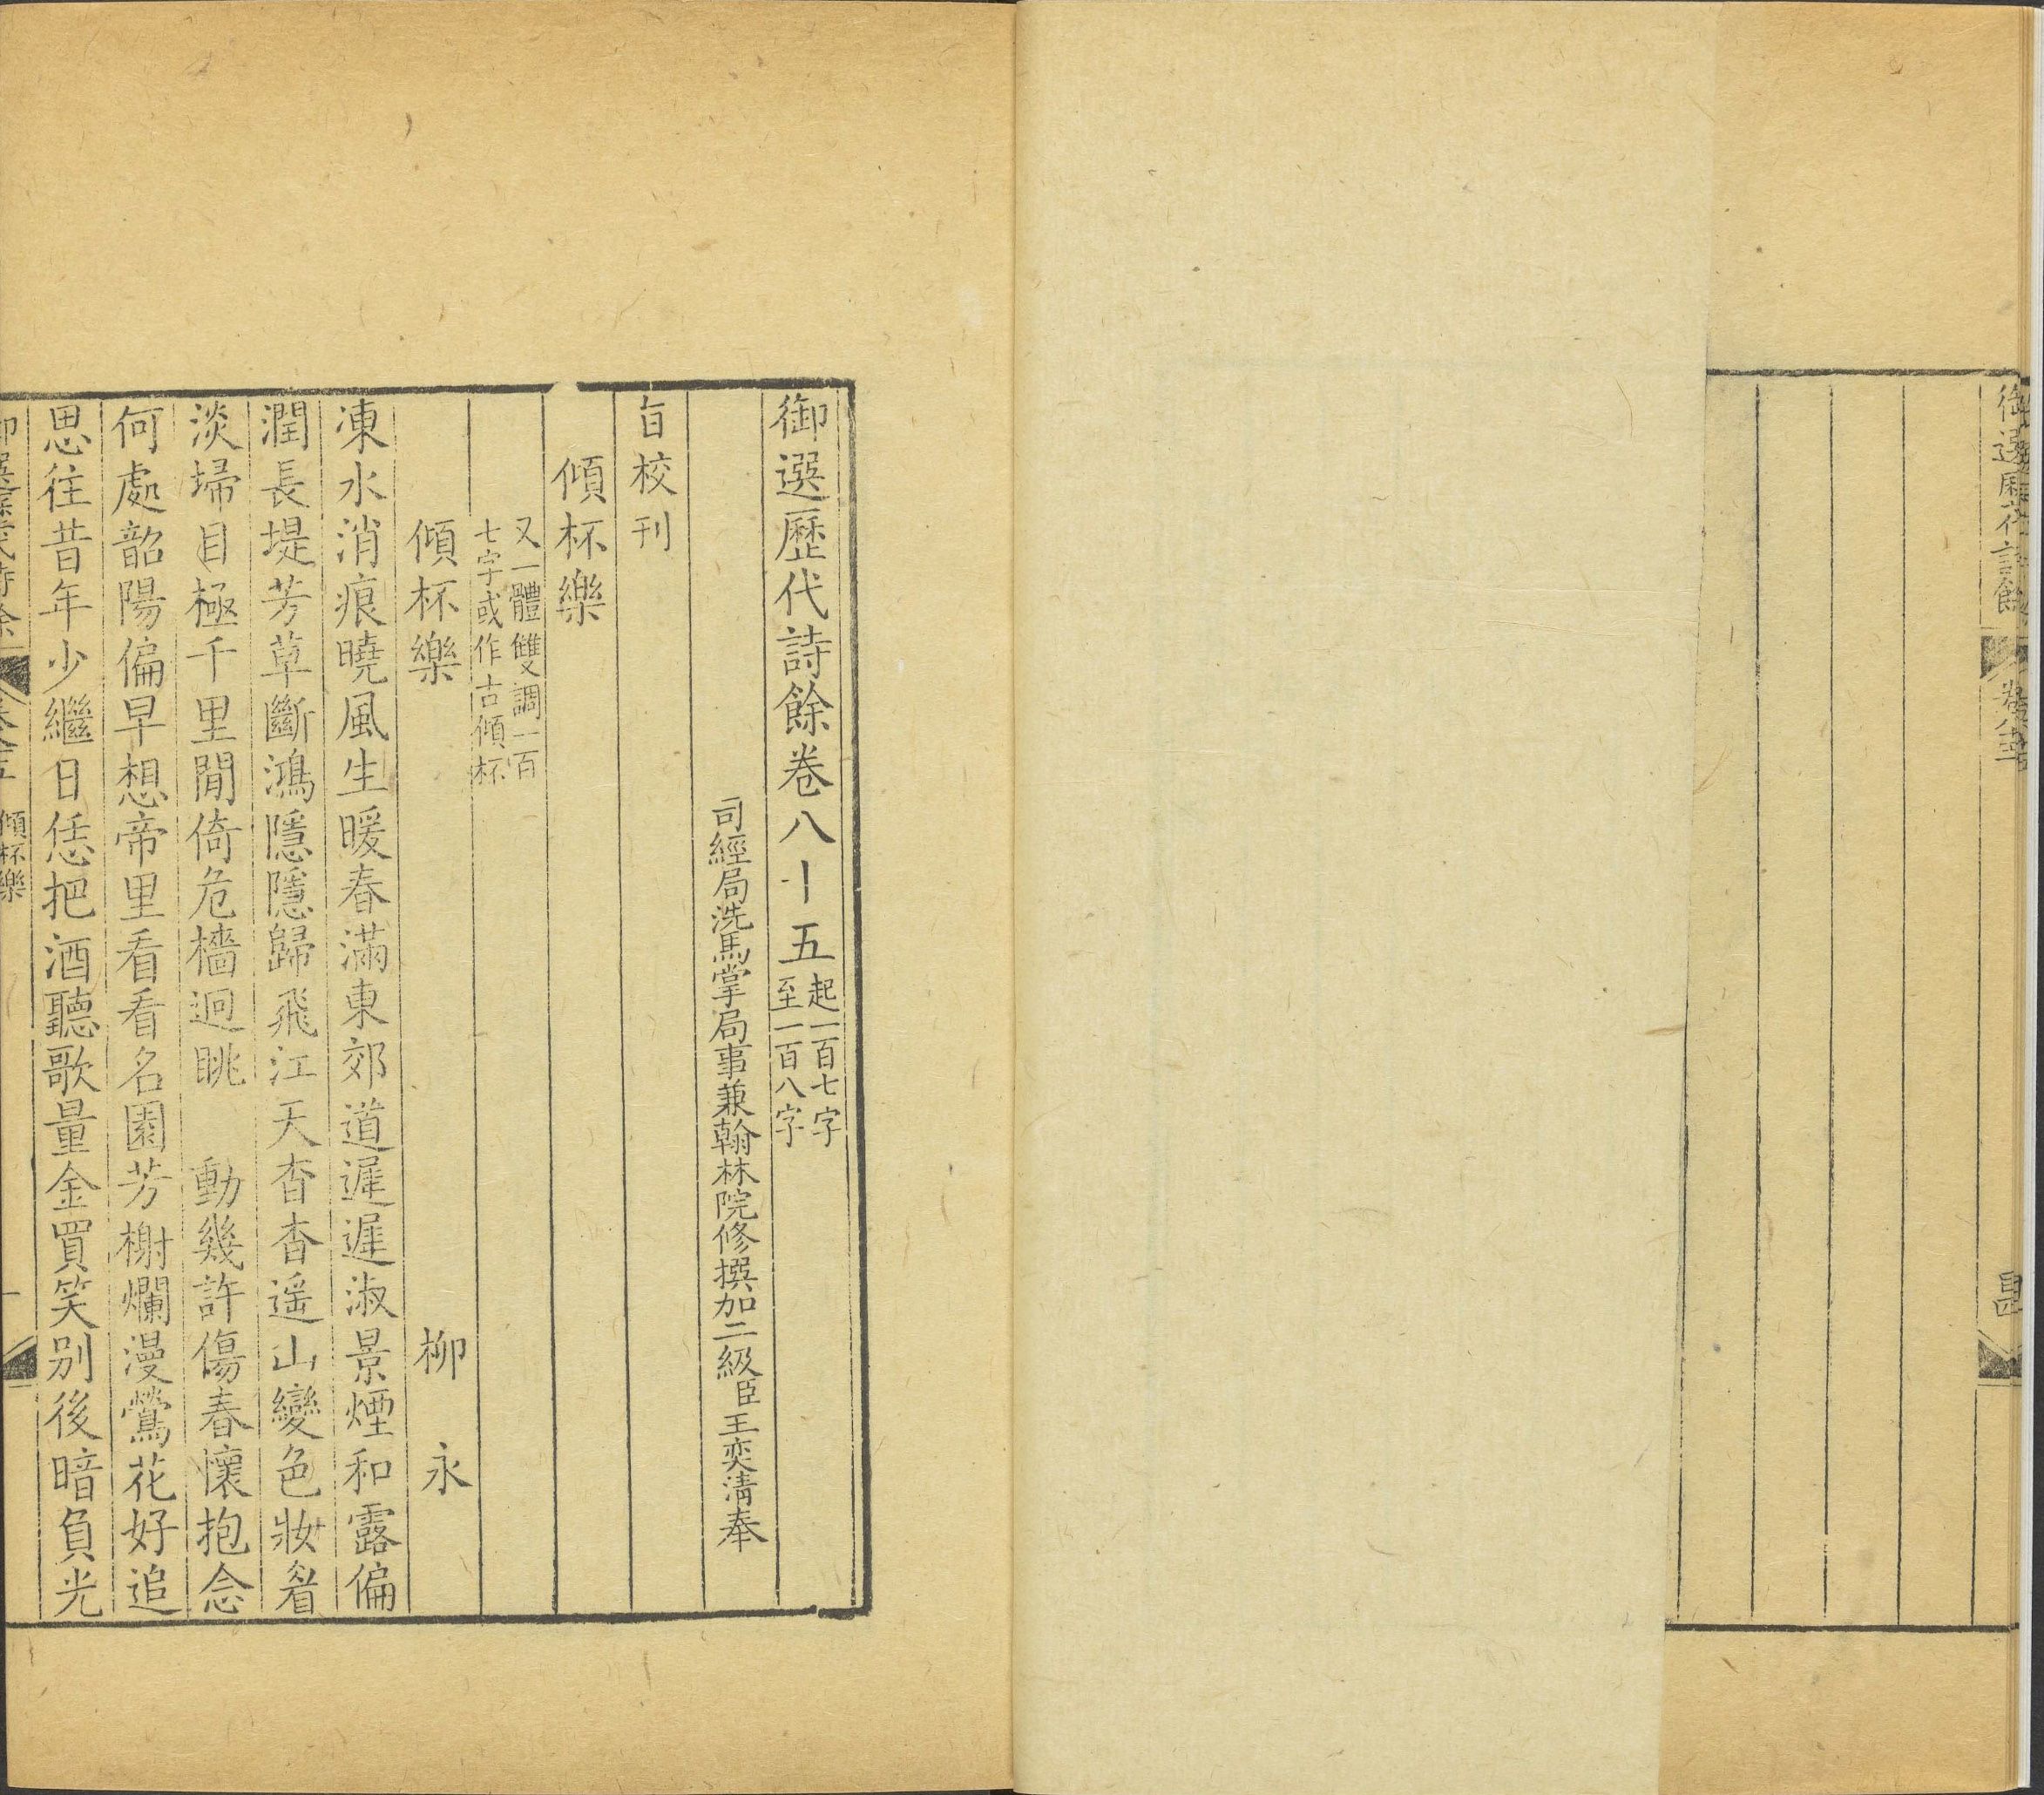 御選歷代詩餘
御選歷代詩餘卷八十五起一百七字至一百八字
司經局洗馬掌局事兼翰林院修撰加二級臣王奕清奉
旨校刊
傾杯樂
又一體雙調一百
七字或作古傾杯
傾杯樂 柳永
凍水消痕曉風生暖春滿東郊道遲遲淑景煙和露偏
潤長堤芳草斷鴻隱隱歸飛江天杳杳遥山變色妝眉
淡埽目極千里閒倚危檣迥眺 動幾許傷春懷抱念
何處韶陽偏早想帝里看看名園芳榭爛漫鶯花好追
思往昔年少繼日恁把酒聽歌量金買笑别後暗負光
御選歷代詩餘 卷八十五 傾杯樂 一